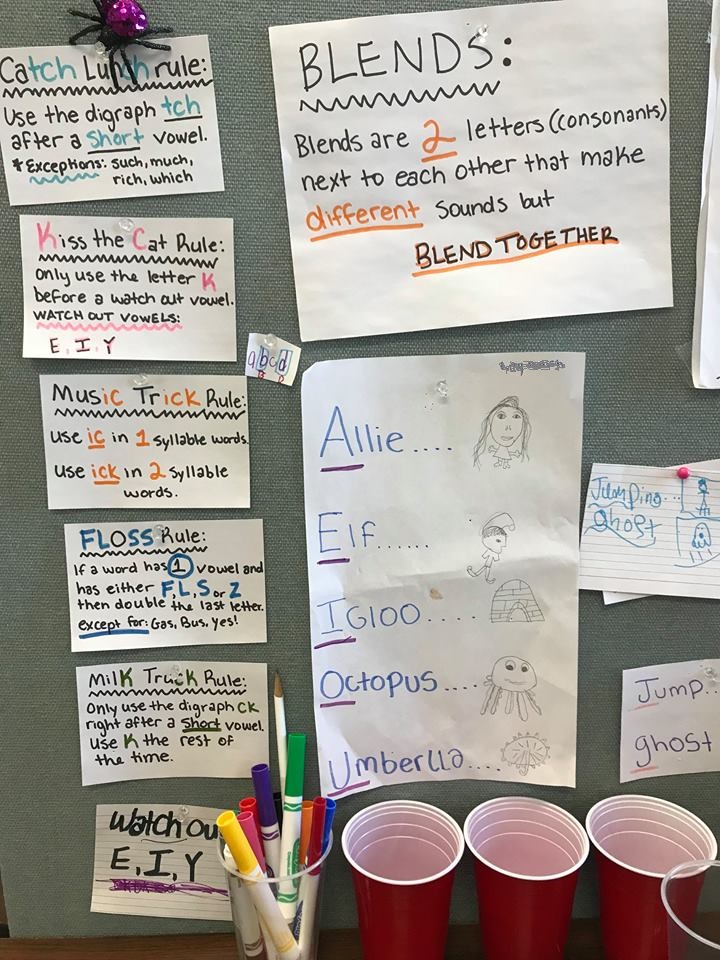 Catch Lunch rule:
Use the digraph tch
after a short vowel.
* Exceptions: such, much,
rich, which
Kiss the Cat Rule:
only use the letter K
before a watch out vowel.
WATCH OUT VOWELS:
E, I, Y
abcd
B D
Music Trick Rule:
use ic in 1 syllable words.
use ick in 2 syllable
words.
FLOSS Rule:
If a word has 1 vowel and
has either F, L, S or Z
then double the last letter.
except for: Gas, Bus, Yes!
Milk Truck Rule:
Only use the digraph CK
right after a short vowel.
Use K the rest of
the time.
Watch Ou
E, I, Y
BLENDS:
Blends are 2 letters (consonants)
next to each other that make
different sounds but
BLEND TOGETHER
Allie....
Elf......
IGloo....
Octopus....
Umberlla....
Jumping...
Ghost
Jump..
ghost